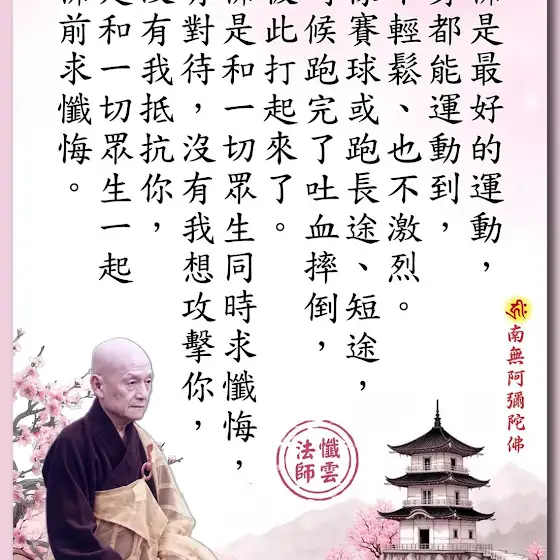 佛是最好的運動，
都能運動到，
輕鬆、也不激烈。
像賽球或跑長途、短途，
候跑完了吐血摔倒，
此打起來了。
佛是和一切眾生同時求懺悔，
有對待，沒有我想攻擊你，
沒有我抵抗你，
是和一切眾生一起
佛前求懺悔。
南無阿彌陀佛
懺雲
法師